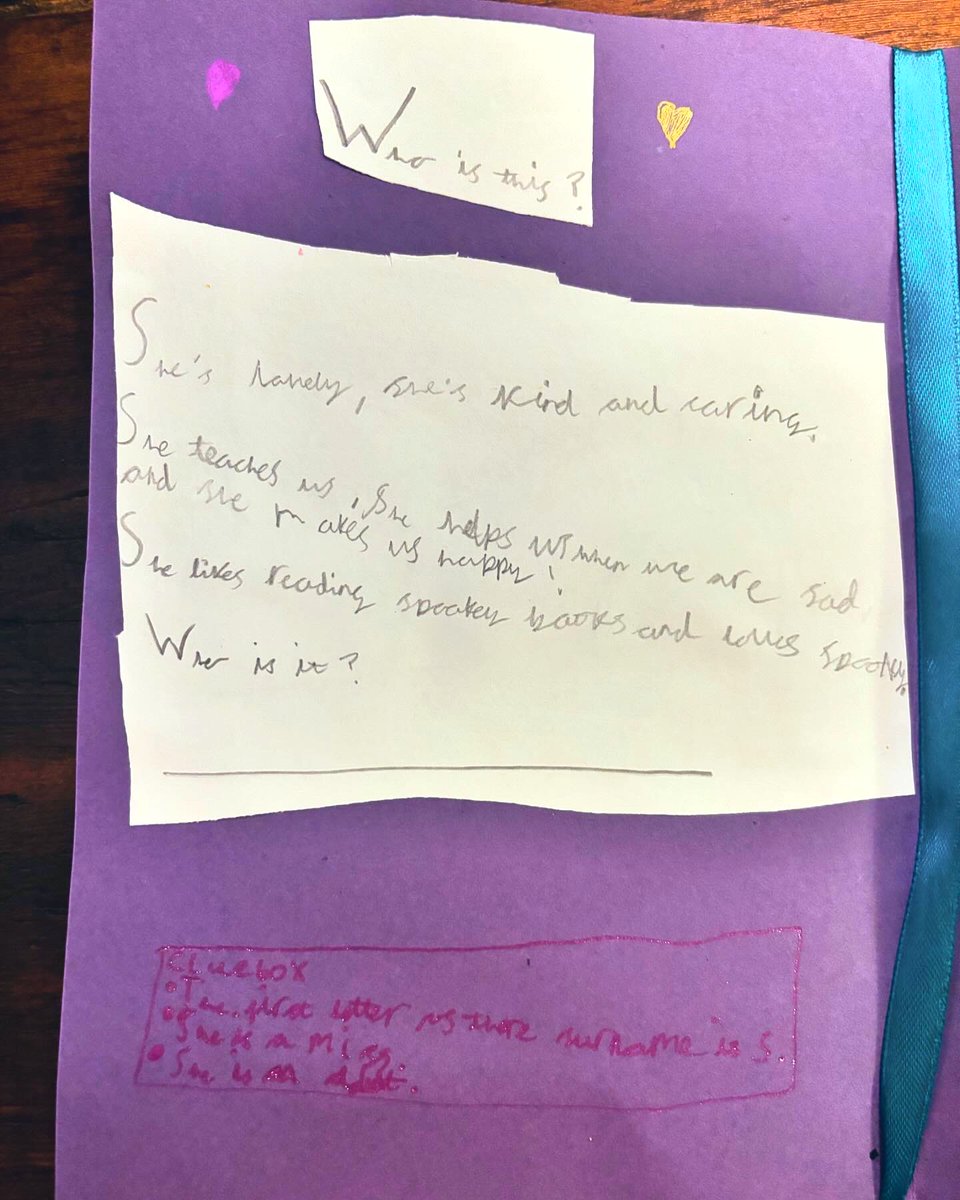 Who is this?
She's lovely, she's kind and caring.
She teaches us, She helps us when we are sad
and she makes us happy!
She likes reading spooky books and loves spooky.
Who is it?
Cluebox
• The first letter is there surname is S.
• She is a Miss.
• She is an adult.